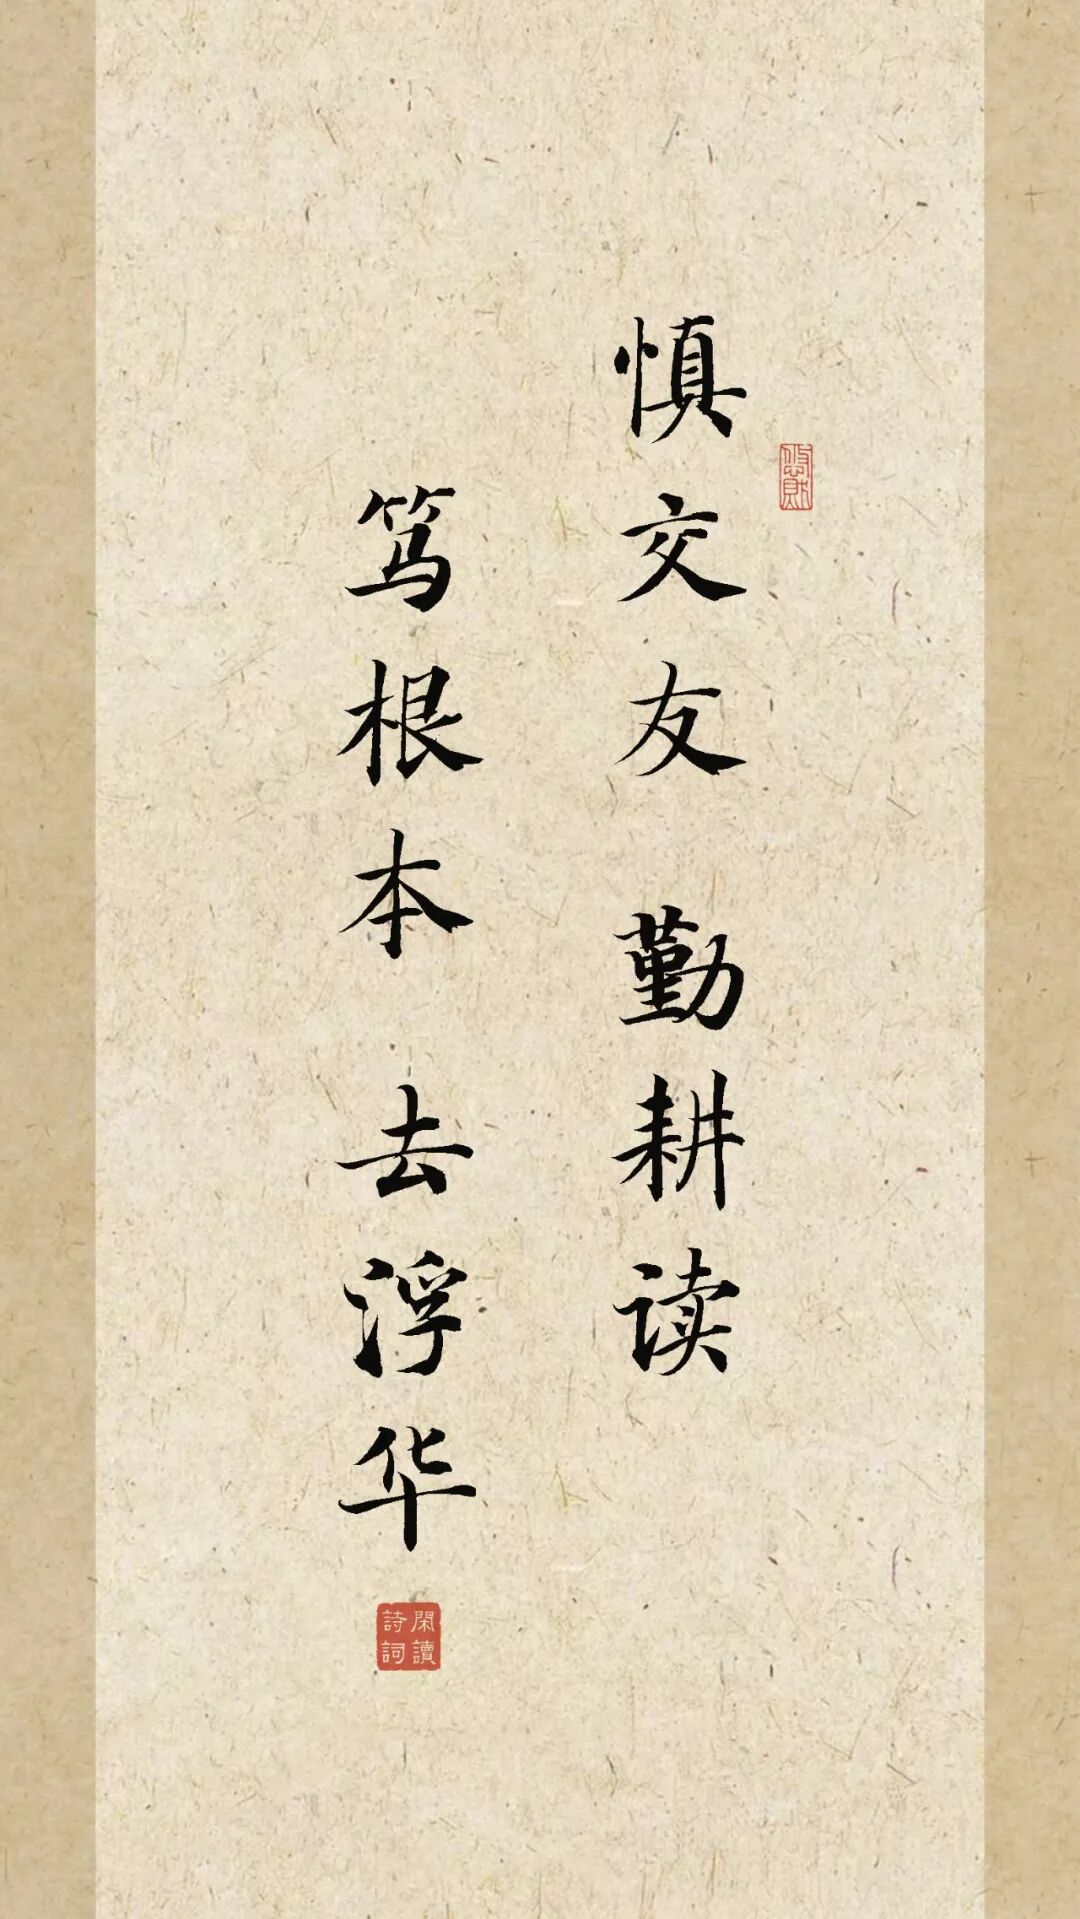 慎交友 勤耕读
笃根本 去浮华
閑讀詩詞